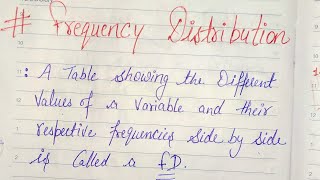 # Frequency Distribution
: A Table showing the Different
Values of a Variable and their
respective frequencies side by side
is Called a fD.